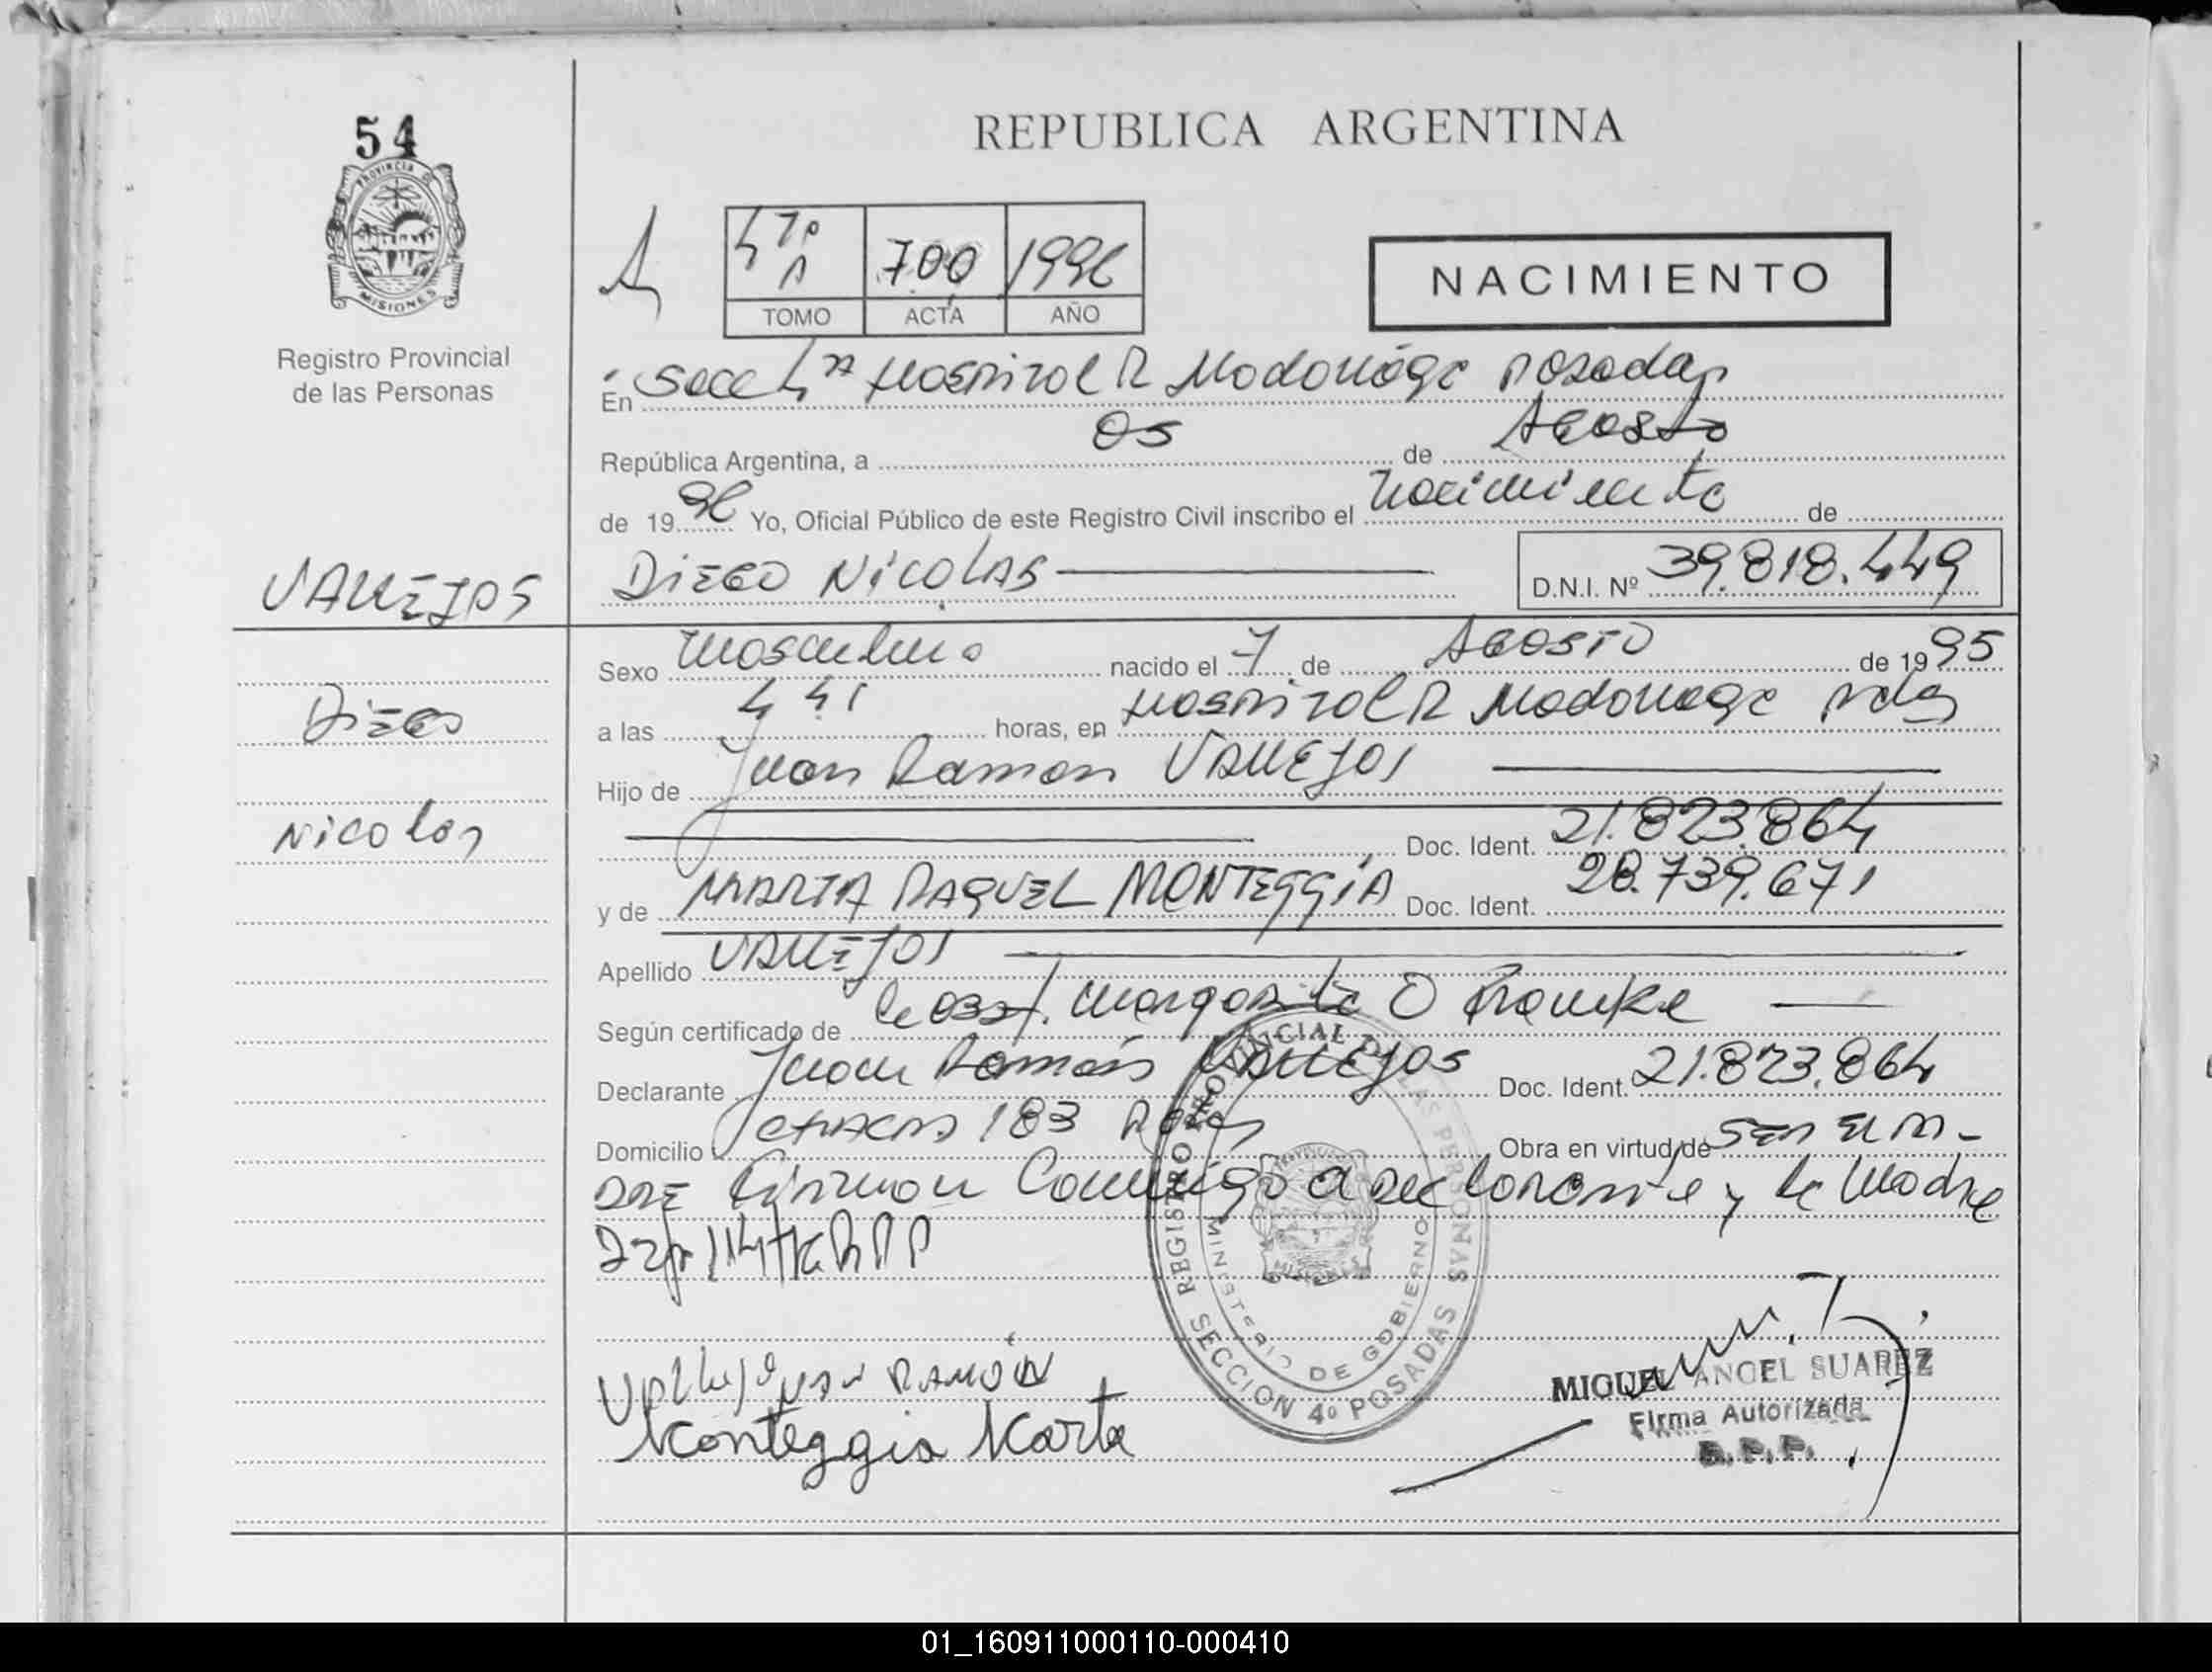 54
PROVINCIA DE
MISIONES
Registro Provincial
de las Personas
REPUBLICA ARGENTINA
A
4ta A 700 1996
TOMO ACTA AÑO
NACIMIENTO
En Secc 4ta Hospital R Madariaga Posadas
República Argentina, a 05 de Agosto
de 1996 Yo, Oficial Público de este Registro Civil inscribo el nacimiento de
DIEGO NICOLAS D.N.I. Nº 39.818.449
VALLEJOS
Diego
Nicolas
Sexo masculino nacido el 7 de AGOSTO de 1995
a las 4 41 horas, en Hospital R Madariaga Pdas
Hijo de Juan Ramon VALLEJOS
Doc. Ident. 21.823.864
y de MARTA RAQUEL MONTEGGIA Doc. Ident. 28.739.671
Apellido VALLEJOS
Según certificado de Obst. Margarita O
Declarante Juan Ramón VALLEJOS Doc. Ident. 21.823.864
Domicilio 183 Pdas Obra en virtud de SER EL PA-
DRE Firman Conmigo declarante y la Madre
REGISTRO PROVINCIAL DE LAS PERSONAS
MINISTERIO DE GOBIERNO
MISIONES
SECCION 4º POSADAS
Vallejo Juan RAMÓN
Monteggia Marta
MIGUEL ANGEL SUAREZ
Firma Autorizada
R.P.P.
01_160911000110-000410